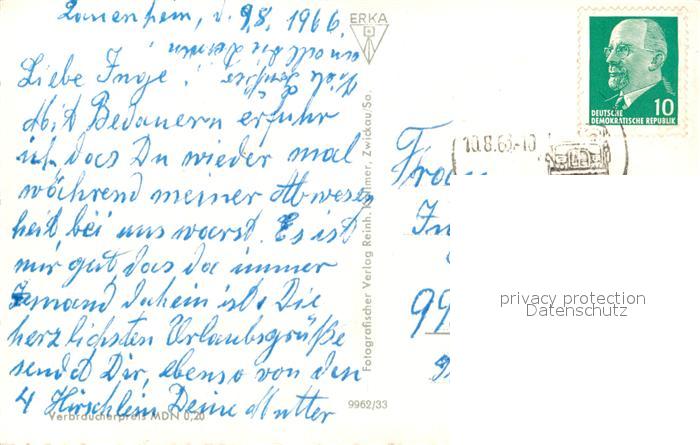 Lauenhein, d. 9.8. 1966.
Liebe Inge!
Mit Bedauern erfuhr
ich das Du wieder mal
während meiner Abwesen
heit bei uns warst. Es ist
mir gut, das da immer
Jemand daheim ist. Die
herzlichsten Urlaubsgrüße
sendet Dir, ebenso von den
4 Hirschlein Deine Mutter
Verbraucherpreis MDN 0,20
ERKA
Fotografischer Verlag Reinh. Kallmer, Zwickau/Sa.
9962/33
10
DEUTSCHE
DEMOKRATISCHE REPUBLIK
10.8.66-10
Frau
In
99
privacy protection
Datenschutz